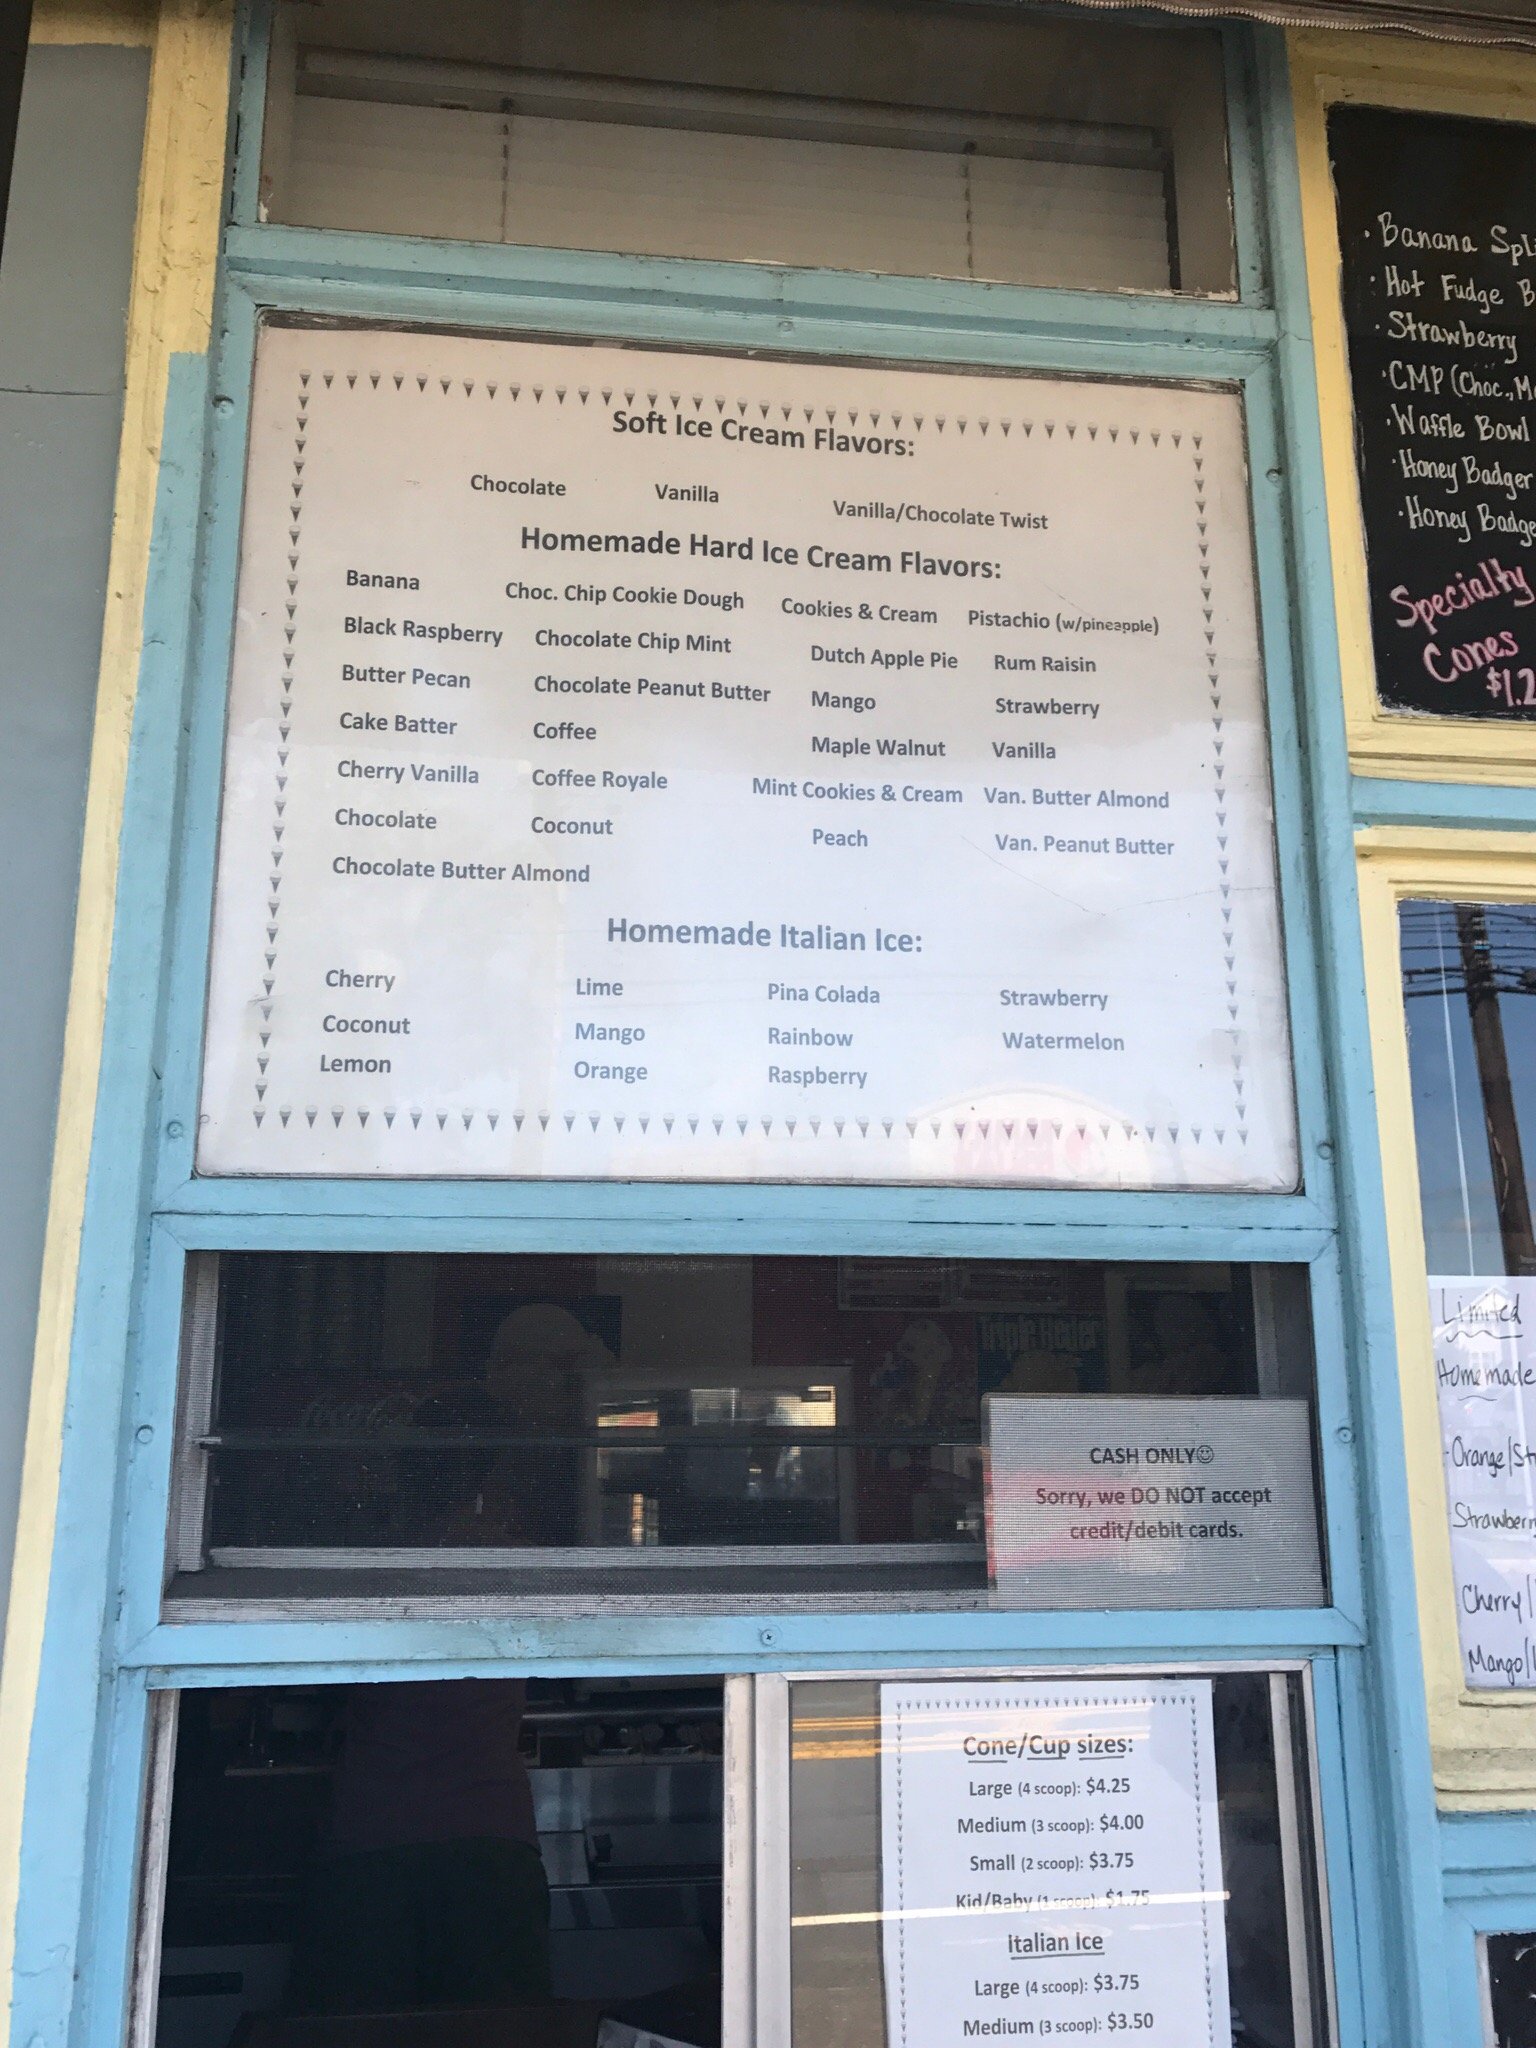 Soft Ice Cream Flavors:
Chocolate Vanilla Vanilla/Chocolate Twist
Homemade Hard Ice Cream Flavors:
Banana Choc. Chip Cookie Dough Cookies & Cream Pistachio (w/pineapple)
Black Raspberry Chocolate Chip Mint Dutch Apple Pie Rum Raisin
Butter Pecan Chocolate Peanut Butter Mango Strawberry
Cake Batter Coffee Maple Walnut Vanilla
Cherry Vanilla Coffee Royale Mint Cookies & Cream Van. Butter Almond
Chocolate Coconut Peach Van. Peanut Butter
Chocolate Butter Almond
Homemade Italian Ice:
Cherry Lime Pina Colada Strawberry
Coconut Mango Rainbow Watermelon
Lemon Orange Raspberry
· Banana
· Hot Fudge
· Strawberry
· CMP (Choc.,
· Waffle Bowl
· Honey Badger
· Honey
Specialty
Cones
CASH ONLY☺
Sorry, we DO NOT accept
credit/debit cards.
Limited
Homemade
Orange/
Cherry/
Mango/
Cone/Cup sizes:
Large (4 scoop): $4.25
Medium (3 scoop): $4.00
Small (2 scoop): $3.75
Kid/Baby (1 scoop): $1.75
Italian Ice
Large (4 scoop): $3.75
Medium (3 scoop): $3.50